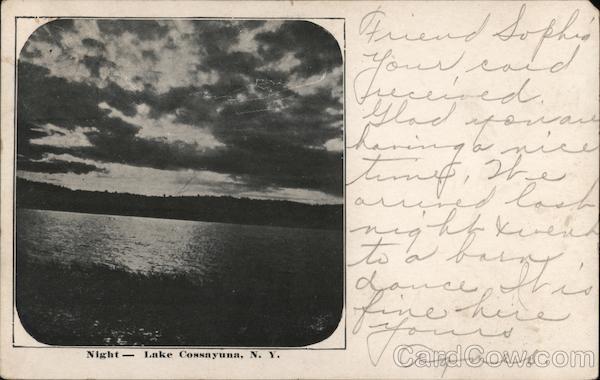 Friend Sophia
Your card
received.
Glad you are
having a nice
time, We
arrived last
night & went
to a barn
dance It is
fine here
Yours
Night — Lake Cossayuna, N. Y.
CardCow.com